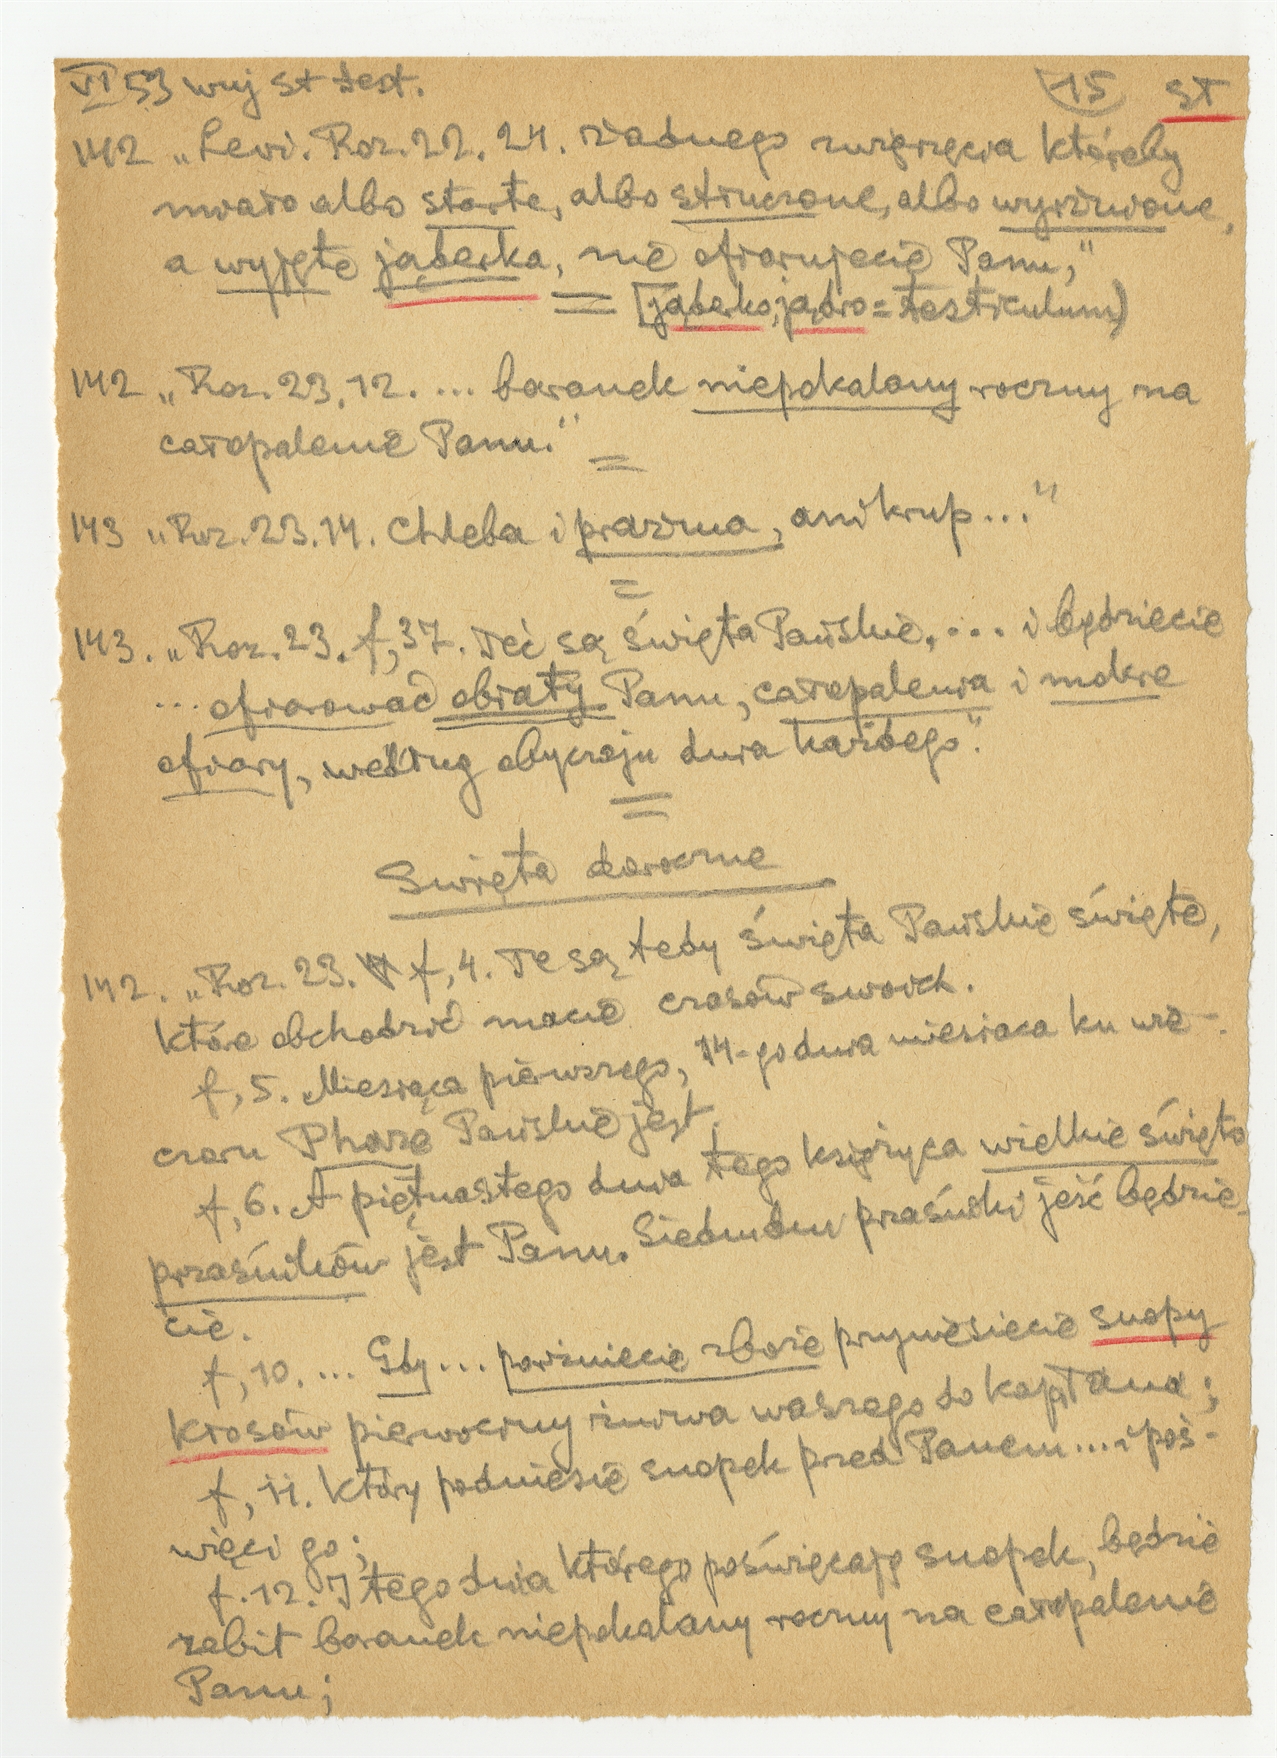 VI 53 wuj st test. 15 ST
142 „Levi. Roz. 22. 24. żadnego zwięrzęcia któreby
miało albo starte, albo stłuczone, albo wyrżnione,
a wyjęte jąderka, nie ofiarujecie Panu,"
[jąderko, jądro = testiculum)
142 „Roz. 23. 12. ... baranek niepokalany roczny na
całopalenie Panu."
143 „Roz. 23. 14. Chleba i prażma, ani krup..."
143. „Roz. 23. f, 37. Teć są święta Pańskie, ... i będziecie
... ofiarować obiaty Panu, całopalenia i mokre
ofiary, według obyczaju dnia każdego".
Święta doroczne
142. „Roz. 23. f, 4. Te są tedy święta Pańskie święte,
które obchodzić macie czasów swoich.
f, 5. Miesiąca pierwszego, 14-go dnia miesiąca ku wie-
czoru Phase Pańskie jest.
f, 6. A piętnastego dnia tego księżyca wielkie święto
przaśników jest Panu. Siedm dni przaśniki jeść będzie-
cie.
f, 10. ... Gdy ... pożniecie zboże przyniesiecie snopy
kłosów pierwociny żniwa waszego do kapłana;
f, 11. który podniesie snopek przed Panem ... i poś-
więci go;
f. 12. I tego dnia którego poświęcają snopek, będzie
zabit baranek niepokalany roczny na całopalenie
Panu;